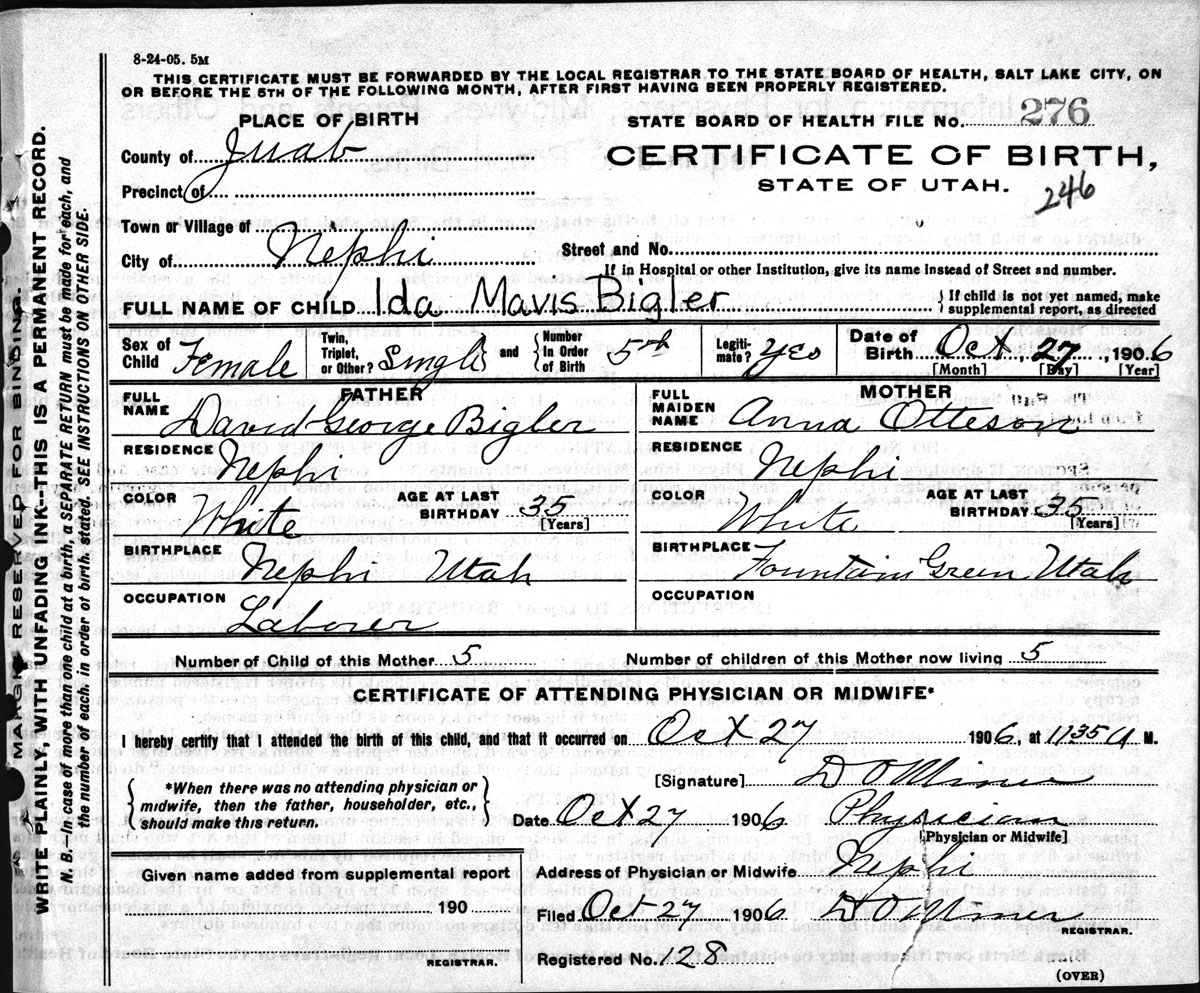 8-24-05. 5M
THIS CERTIFICATE MUST BE FORWARDED BY THE LOCAL REGISTRAR TO THE STATE BOARD OF HEALTH, SALT LAKE CITY, ON
OR BEFORE THE 5TH OF THE FOLLOWING MONTH, AFTER FIRST HAVING BEEN PROPERLY REGISTERED.
PLACE OF BIRTH
STATE BOARD OF HEALTH FILE No. 276
County of Juab
CERTIFICATE OF BIRTH,
STATE OF UTAH.
246
Precinct of
Town or Village of
City of Nephi
Street and No.
If in Hospital or other Institution, give its name instead of Street and number.
FULL NAME OF CHILD Ida Mavis Bigler
If child is not yet named, make
supplemental report, as directed
Sex of Child Female
Twin, Triplet, or Other? Single and Number in Order of Birth 5th
Legiti-mate? Yes
Date of Birth Oct 27, 1906
[Month] [Day] [Year]
FATHER
FULL NAME David George Bigler
RESIDENCE Nephi
COLOR White
AGE AT LAST BIRTHDAY 35
[Years]
BIRTHPLACE Nephi Utah
OCCUPATION Laborer
MOTHER
FULL MAIDEN NAME Anna Otteson
RESIDENCE Nephi
COLOR White
AGE AT LAST BIRTHDAY 35
[Years]
BIRTHPLACE Fountain Green Utah
OCCUPATION
Number of Child of this Mother 5
Number of children of this Mother now living 5
CERTIFICATE OF ATTENDING PHYSICIAN OR MIDWIFE*
I hereby certify that I attended the birth of this child, and that it occurred on Oct 27 1906, at 11.35 a M.
*When there was no attending physician or
midwife, then the father, householder, etc.,
should make this return.
[Signature] D O Miner
Date Oct 27 1906 Physician
[Physician or Midwife]
Given name added from supplemental report
190
REGISTRAR.
Address of Physician or Midwife Nephi
Filed Oct 27 1906 D O Miner
REGISTRAR.
Registered No. 128
(OVER)
MARGIN RESERVED FOR BINDING.
WRITE PLAINLY, WITH UNFADING INK—THIS IS A PERMANENT RECORD.
N. B.—In case of more than one child at a birth, a SEPARATE RETURN must be made for each, and
the number of each, in order of birth, stated. SEE INSTRUCTIONS ON OTHER SIDE.